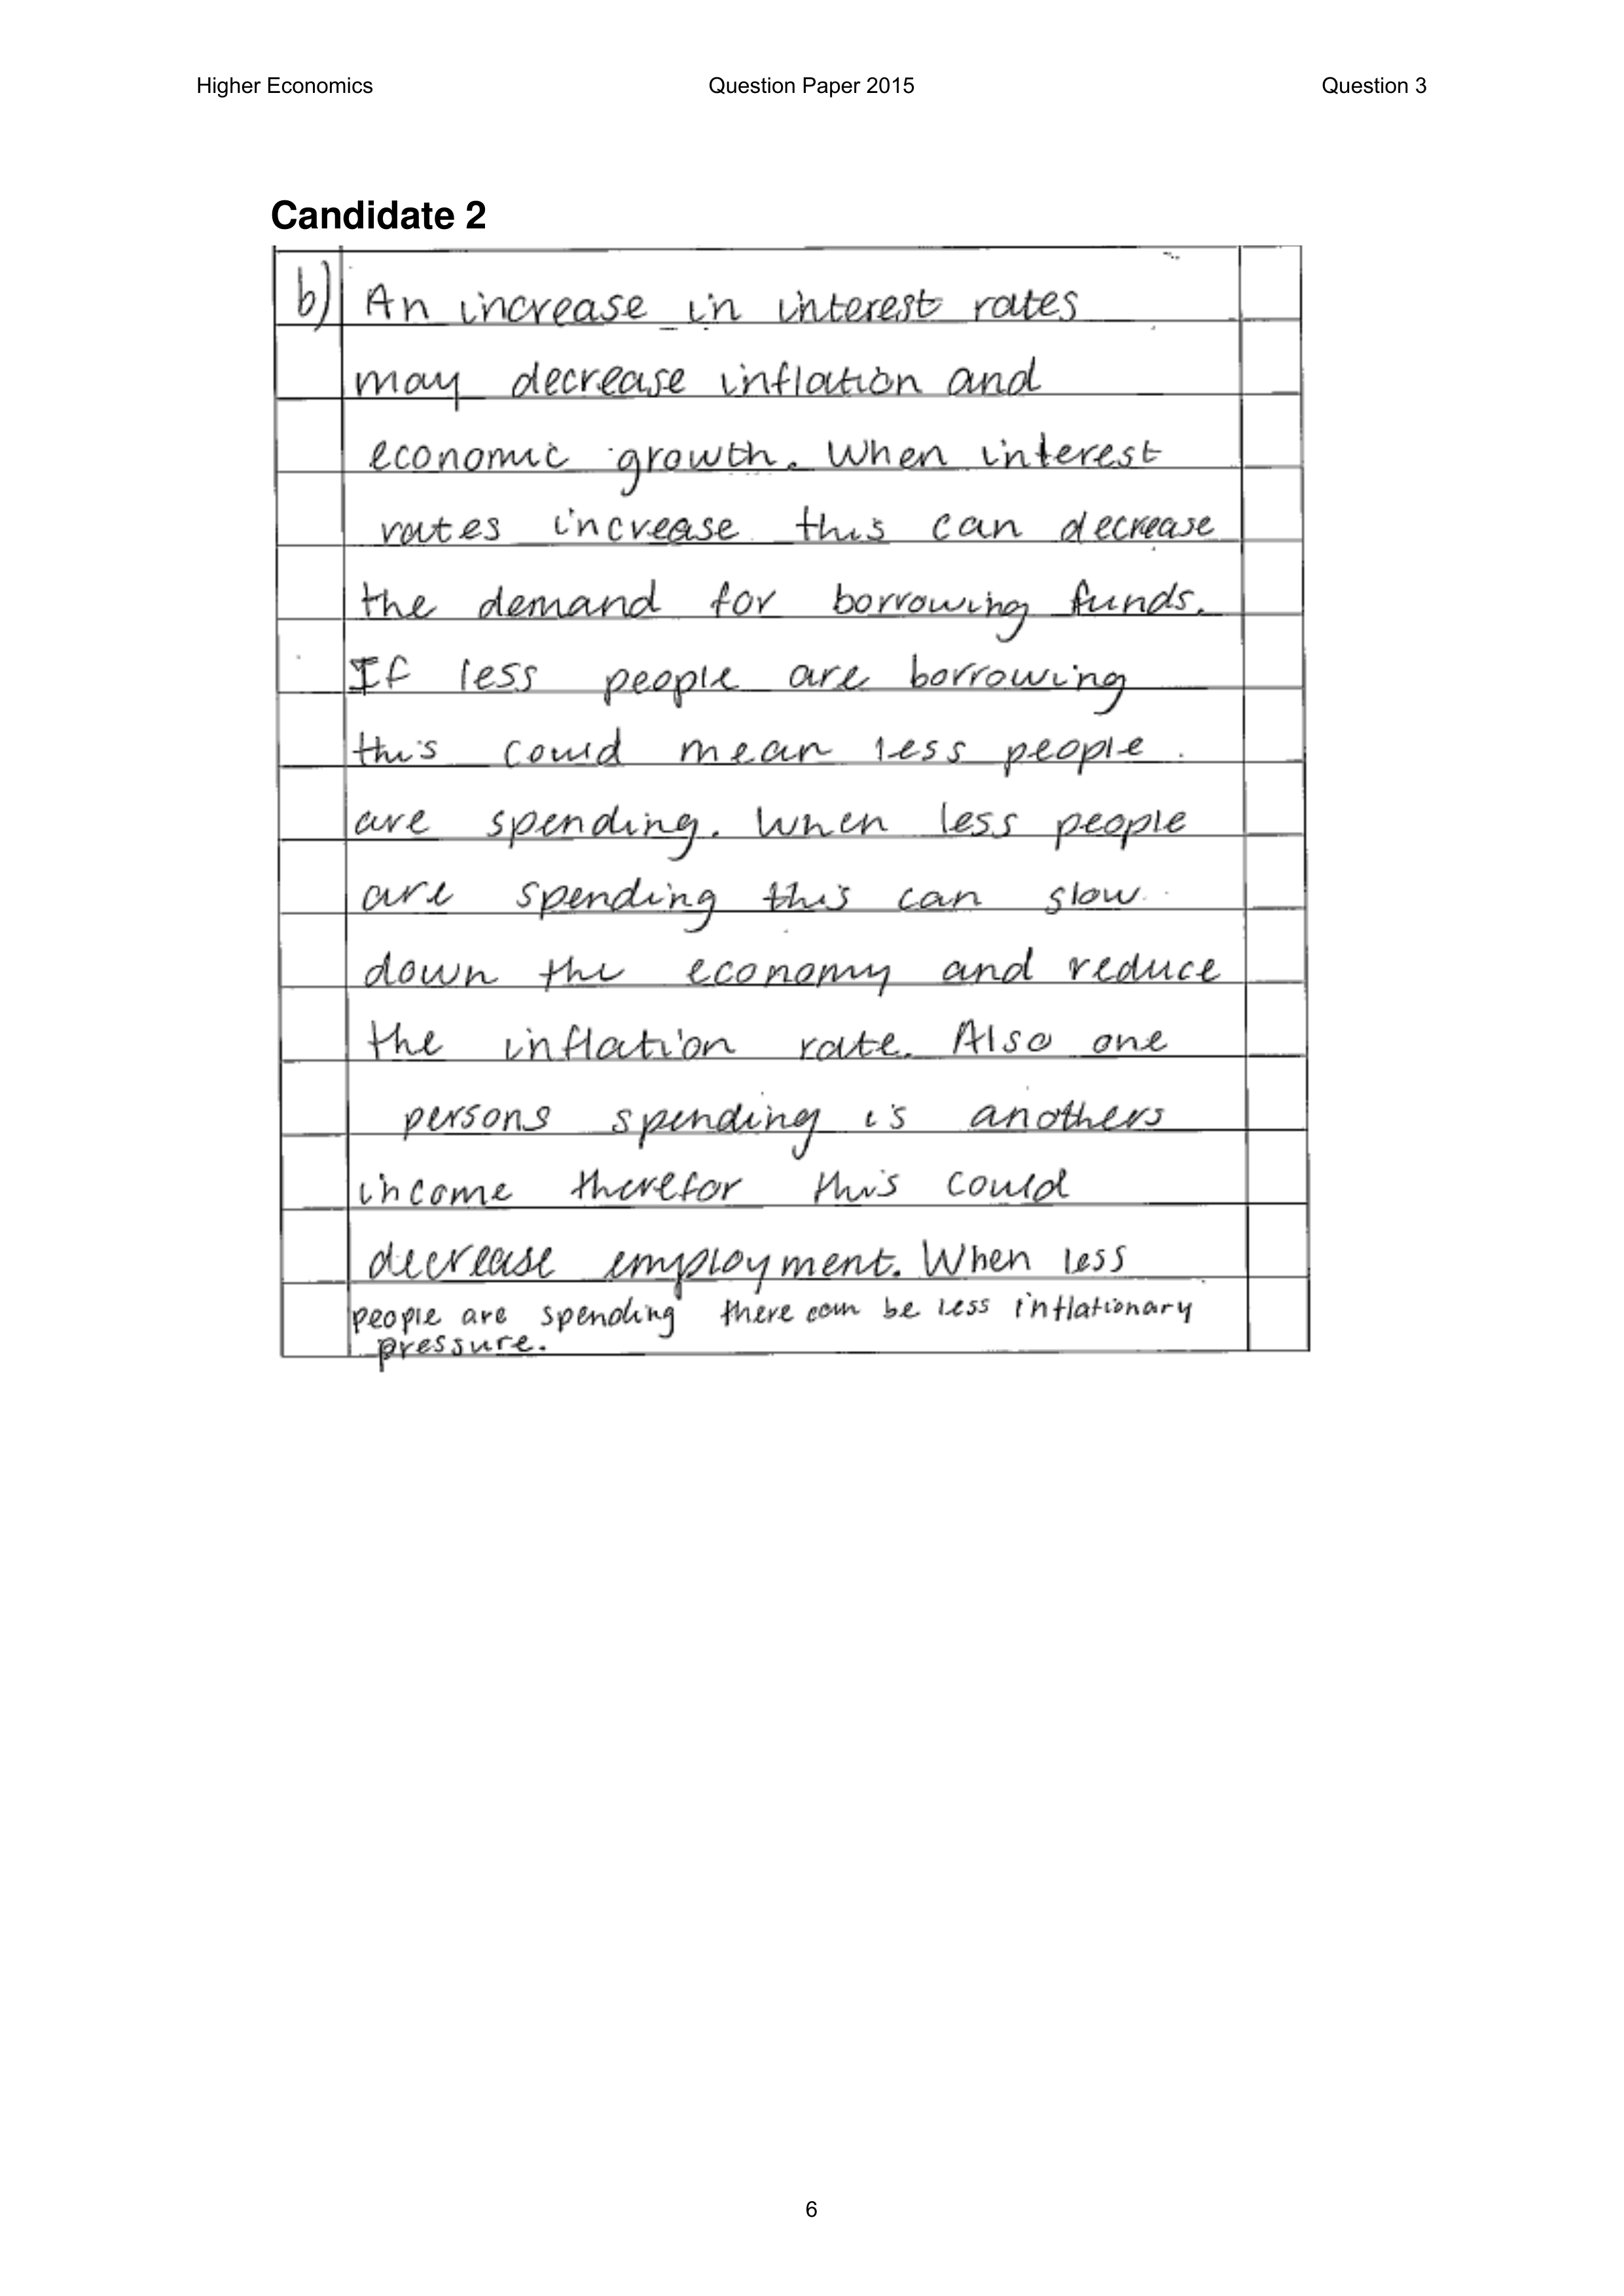 Higher Economics Question Paper 2015 Question 3
Candidate 2
b) An increase in interest rates
may decrease inflation and
economic growth. When interest
rates increase this can decrease
the demand for borrowing funds.
If less people are borrowing
this could mean less people
are spending. When less people
are spending this can slow
down the economy and reduce
the inflation rate. Also one
persons spending is anothers
income therefor this could
decrease employment. When less
people are spending there can be less inflationary
pressure.
6